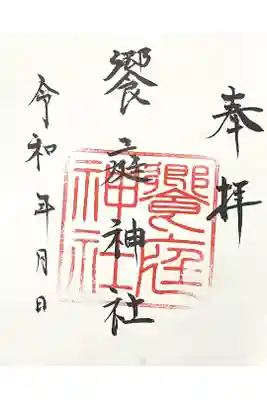 奉拝
饗庭神社
饗庭神社
令和年月日